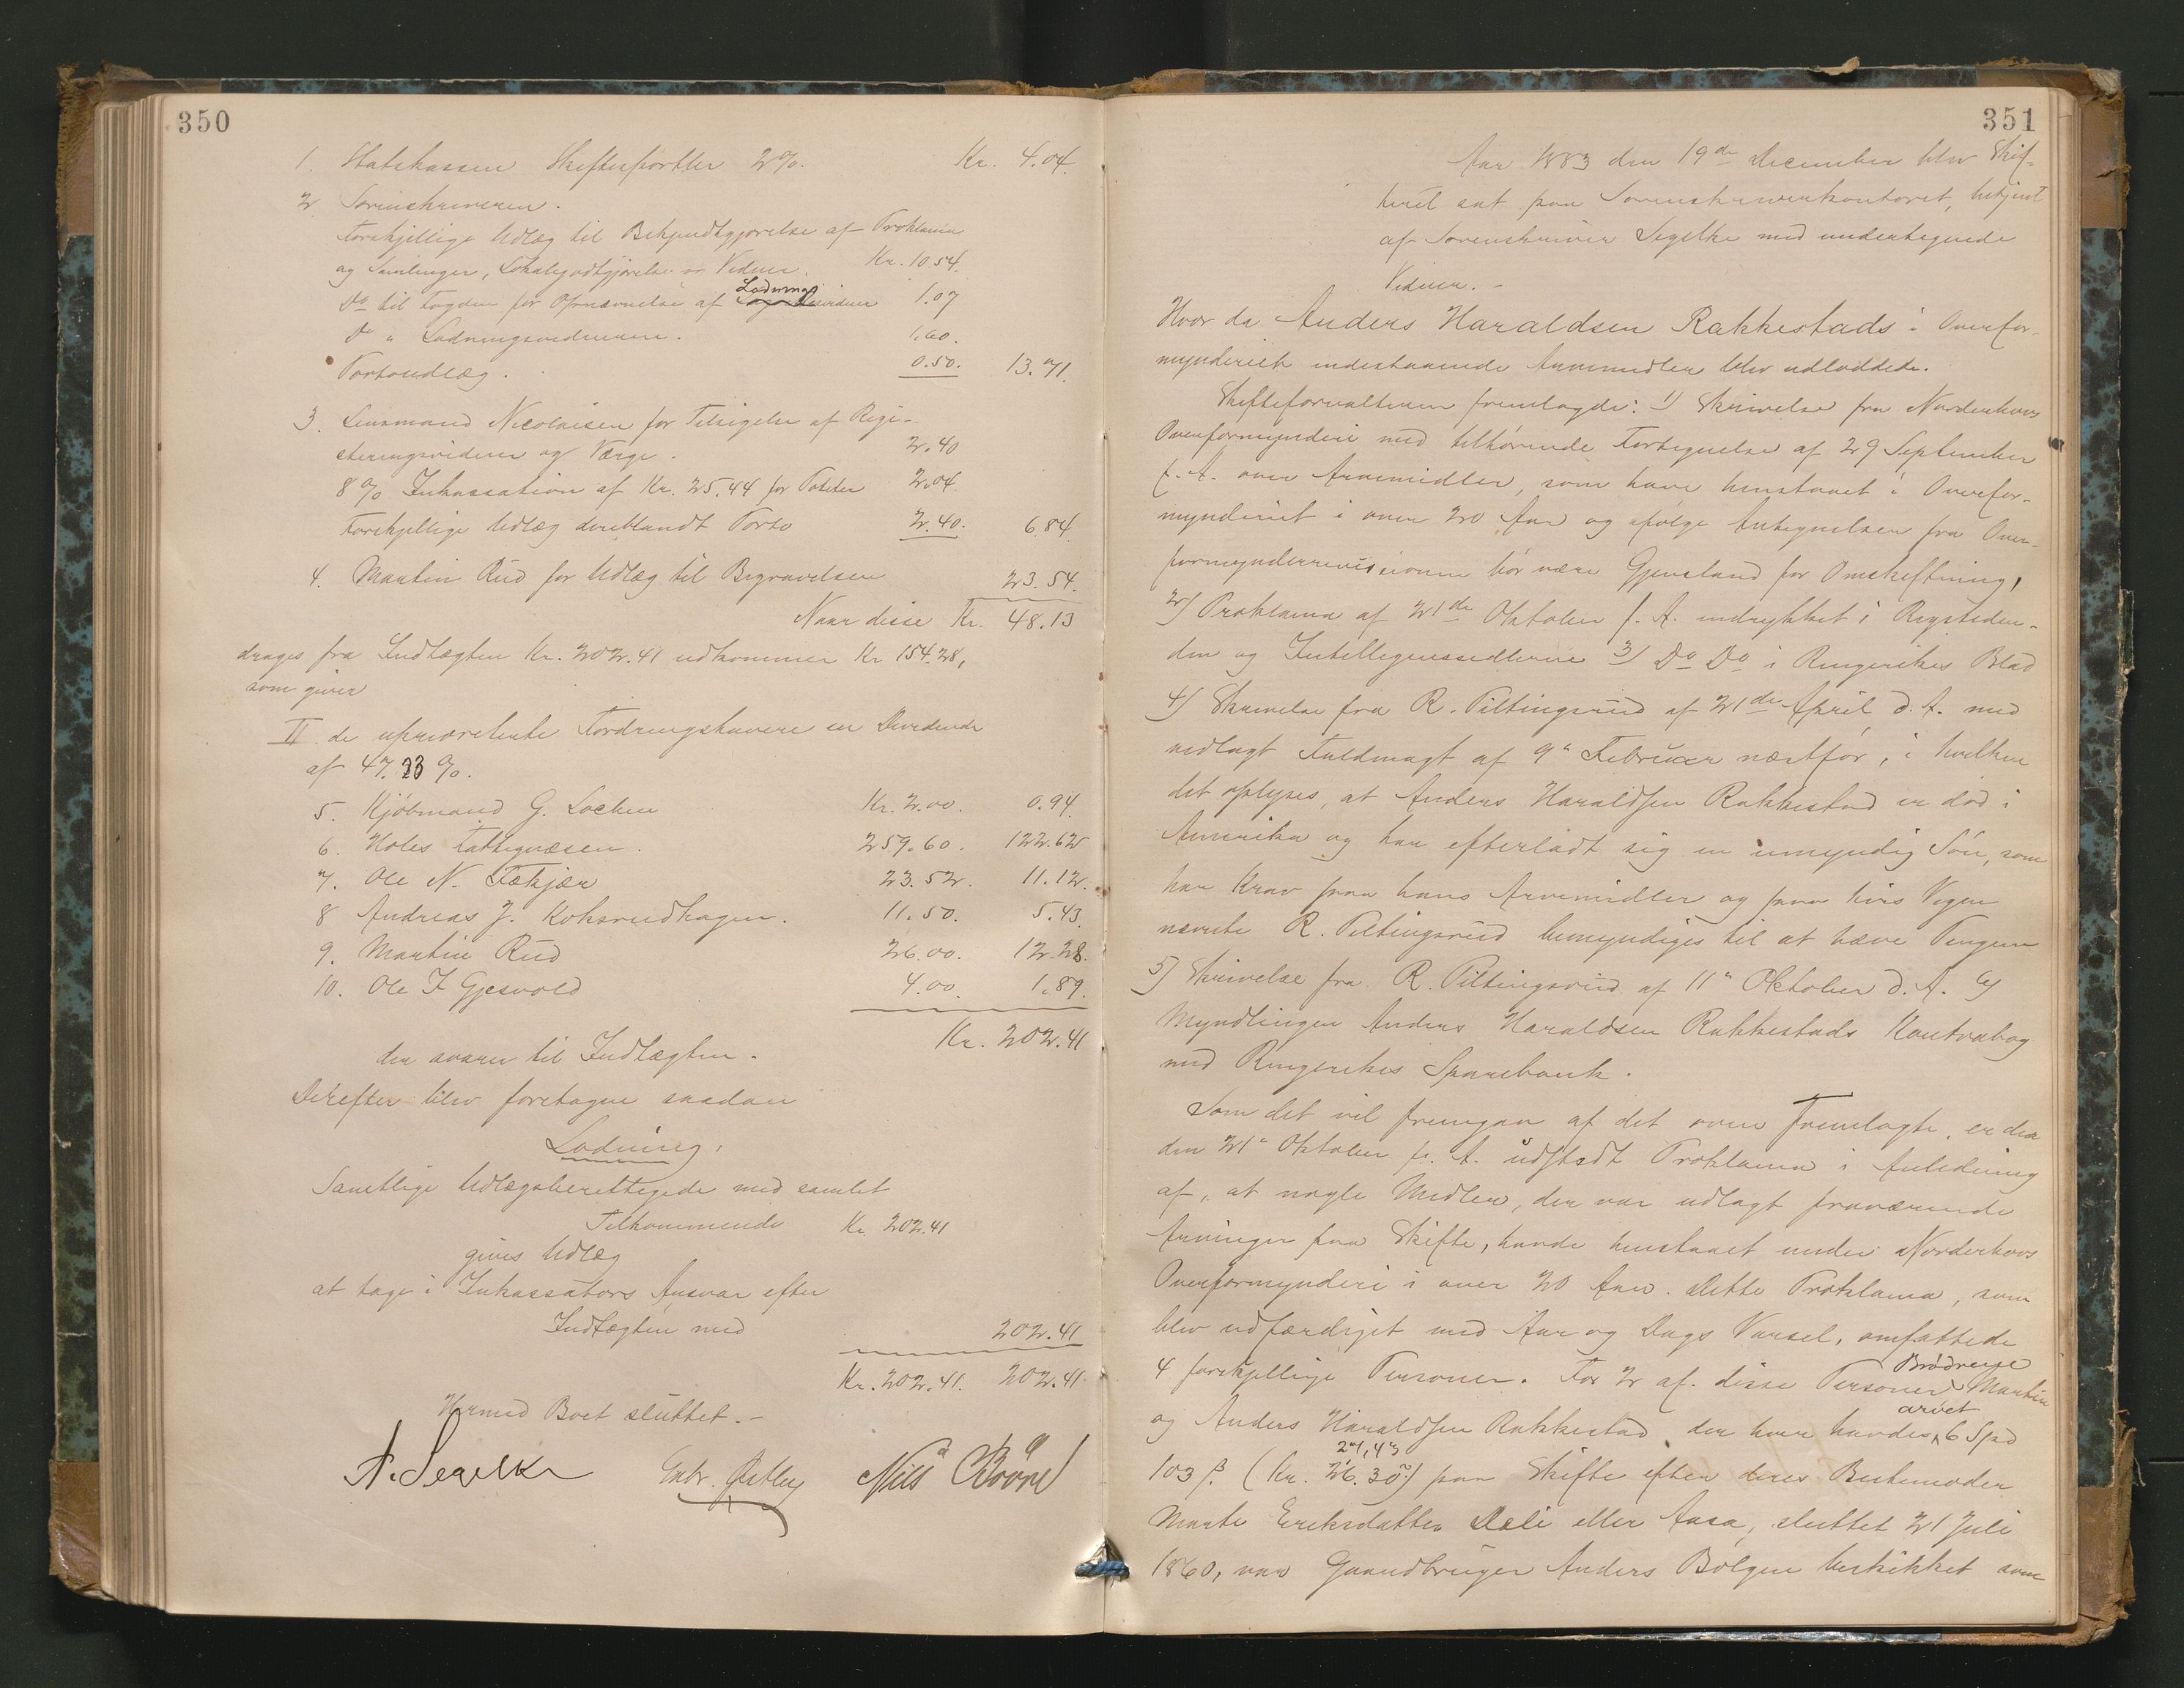 350
1. Statskassen Skiftesportler 2%. Kr. 4.04.
2 Sorenskriveren.
Forskjellige Udlæg til Bekjendtgjørelse af Proklama
og Samlinger, Lokalgodtgjørelse og Vidner. Kr. 10.54.
Do til Fogden for Opnævnelse af Lodningsvidner 1.07
Do " Lodningsvidnerne. 1.60.
Portoudlæg. 0.50. 13.71.
3. Lensmand Nicolaisen for Tilsigelse af Regi-
streringsvidner og Værge. 2.40
8% Inkassation af Kr. 25.44 for Poster 2.04
Forskjellige Udlæg deriblandt Porto 2.40. 6.84.
4. Martin Rud for Udlæg til Begravelsen 23.54.
Naar disse Kr. 48.13
drages fra Indtægten Kr. 202.41 udkommer Kr 154.28,
som giver
II de uprioriterte Fordringshavere en Dividende
af 47.23 %.
5. Kjøbmand G. Lochen Kr. 2.00. 0.94.
6. Holes Fattigvæsen. 259.60. 122.62
7. Ole N. Fækjær 23.52. 11.12.
8 Andreas J. Koksrudhagen. 11.50. 5.43.
9. Martin Rud 26.00. 12.28.
10. Ole I Gjesvold 4.00. 1.89.
Kr. 202.41
der svarer til Indtægten.
Derefter blev foretagen saadan
Lodning.
Samtlige Udlægsberettigede med samlet
Tilkommende Kr 202.41
gives Udlæg
at tage i Inkassators Ansvar efter
Indtægten med 202.41
Kr. 202.41. 202.41.
Hermed Boet sluttet. -
A. Segelke Nils Bråne
351
Aar 1883 den 19de December blev Skif-
teret sat paa Sorenskriverkontoret, betjent
af Sorenskriver Segelke med undertegnede
Vidner. -
Hvor da Anders Haraldsen Rakkestads i Overfor-
mynderiet indestaaende Arvemidler blev udloddede.
Skifteforvalteren fremlagde: 1) Skrivelse fra Norderhovs
Overformynderi med tilhørende Fortegnelse af 29 September
f. A. over Arvemidler, som have henstaaet i Overfor-
mynderiet i over 20 Aar og ifølge Antegnelser fra Over-
formynderrevisionen bør være Gjenstand for Omskiftning,
2) Proklama af 21de Oktober f. A. indrykket i Rigstiden-
den og Intelligenssedlerne 3) Do Do i Ringerikes Blad
4) Skrivelse fra R. Piltingsrud af 21de April d. A. med
vedlagt Fuldmagt af 9" Februar næstfør, i hvilken
det oplyses, at Anders Haraldsen Rakkestad er død i
Amerika og har efterladt sig en umyndig Søn, som
har Krav paa hans Arvemidler og paa hvis Vegne
nævnte R. Piltingsrud bemyndiges til at hæve Pengene
5) Skrivelse fra R. Piltingsrud af 11" Oktober d. A. 6)
Myndlingen Anders Haraldsen Rakkestads Kontrabog
med Ringerikes Sparebank.
Som det vil fremgaa af det oven Fremlagte, er der
den 21" Oktober f. A. udstedt Proklama i Anledning
af, at nogle Midler, der var udlagt fraværende
Arvinger paa Skifte, havde henstaaet under Norderhovs
Overformynderi i over 20 Aar. Dette Proklama, som
blev udfærdiget med Aar og Dags Varsel, omfattede
4 forskjellige Personer. For 2 af disse Personer Brødrene Martin
og Anders Haraldsen Rakkestad der hver havde arvet 6 Spd
103 ß. (Kr. 26.30) 27,43 paa Skifte efter deres Bestemoder
Marte Eriksdatter Dæli eller Aasa, sluttet 21 Juli
1860, var Gaardbruger Anders Bølgen beskikket som